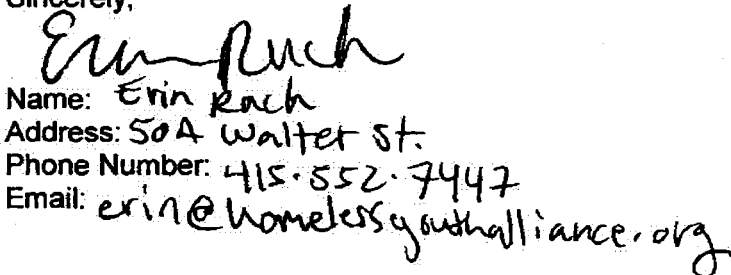 Sincerely,
Erin Ruch
Name: Erin Ruch
Address: 50A Walter St.
Phone Number: 415.552.7447
Email: erin@homelessyouthalliance.org